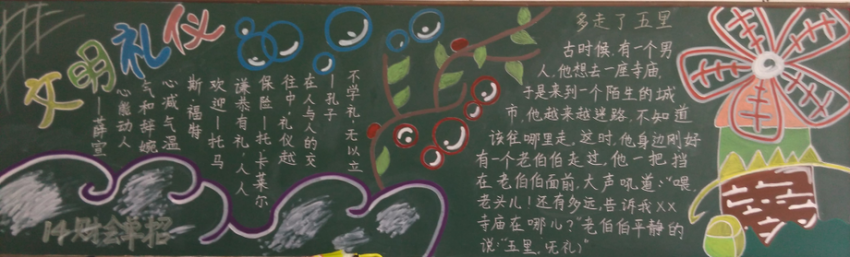 文明礼仪
不学礼,无以立
—孔子
在人与人的交
往中,礼仪越
保险—托·卡莱尔
谦恭有礼,人人
欢迎—托马
斯·福特
心减气温
气和辞婉
心能动人
—薛宣
14财会单招
多走了五里
古时候,有一个男
人,他想去一座寺庙,
于是来到一个陌生的城
市,他越来越迷路,不知道
该往哪里走,这时,他身边刚好
有一个老伯伯走过,他一把挡
在老伯伯面前,大声吼道:“喂,
老头儿!还有多远,告诉我XX
寺庙在哪儿?”老伯伯平静的
说:“五里,无礼)”